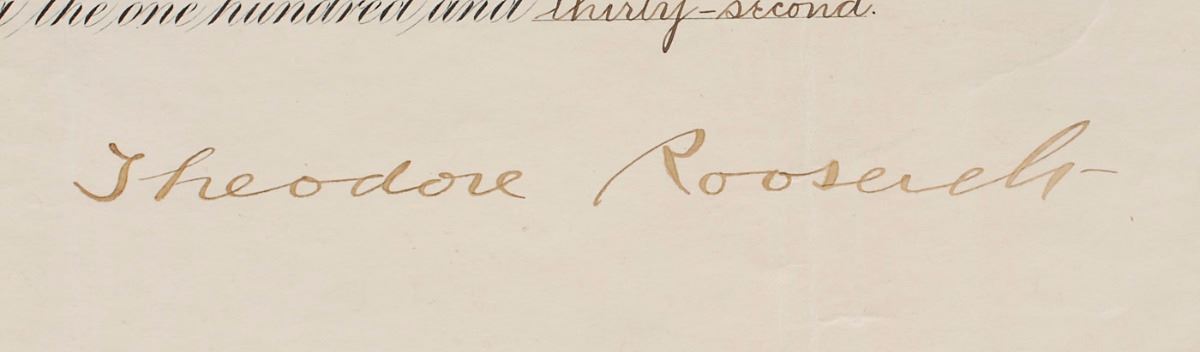 the one hundred and thirty-second.
Theodore Roosevelt